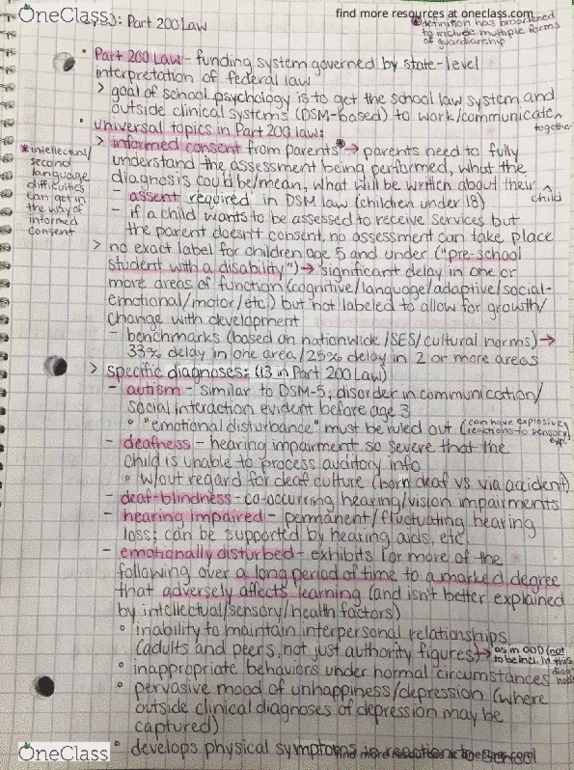 OneClass
find more resources at oneclass.com
: Part 200 Law
definition has broadened
to include multiple forms
of guardianship
• Part 200 Law - funding system governed by state-level
interpretation of federal law
> goal of school psychology is to get the school law system and
outside clinical systems (DSM-based) to work/communicate ^
together
• universal topics in Part 200 law:
> informed consent from parents* → parents need to fully
understand the assessment being performed, what the
diagnosis could be/mean, what will be written about their ^
child
*intellectual/
second
language
difficulties
can get in
the way of
informed
consent
- assent required in DSM law (children under 18)
- if a child wants to be assessed to receive services but
the parent doesn't consent, no assessment can take place
> no exact label for children age 5 and under ("pre-school
student with a disability") → significant delay in one or
more areas of function (cognitive/language/adaptive/social-
emotional/motor/etc) but not labeled to allow for growth/
change with development
- benchmarks (based on nationwide/SES/cultural norms) →
33% delay in one area/25% delay in 2 or more areas
> specific diagnoses: (13 in Part 200 Law)
- autism - similar to DSM-5; disorder in communication/
social interaction evident before age 3
° "emotional disturbance" must be ruled out (can have explosive
reactions to sensory exp.
- deafness - hearing impairment so severe that the
child is unable to process auditory info
° w/out regard for deaf culture (born deaf vs. via accident)
- deaf-blindness - co-occurring hearing/vision impairments
- hearing impaired - permanent/fluctuating hearing
loss; can be supported by hearing aids, etc.
- emotionally disturbed - exhibits 1 or more of the
following over a long period of time to a marked degree
that adversely affects learning (and isn't better explained
by intellectual/sensory/health factors)
° inability to maintain interpersonal relationships
(adults and peers, not just authority figures) → as in ODD (not
to be incl. in this
° inappropriate behaviors under normal circumstances
° pervasive mood of unhappiness/depression (where
outside clinical diagnoses of depression may be
captured)
° develops physical symptoms in reaction to school
OneClass